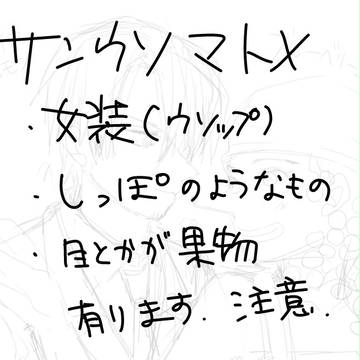 サンウソマトメ
・女装(ウソップ)
・しっぽのようなもの
・目とかが果物
有ります. 注意.